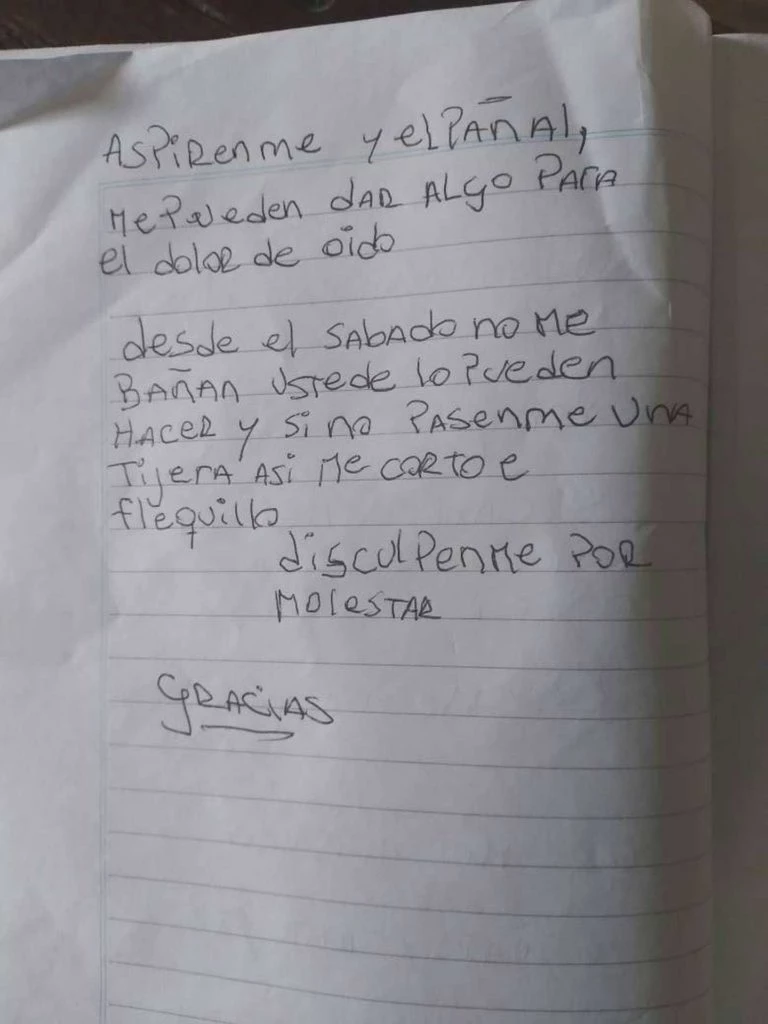 ASPIRENME y el PAÑAL,
ME PUEDEN DAR ALGO PARA
el dolor de oido
desde el SABADO NO ME
BAÑAN USTEDE lo PUEDEN
HACER y Si no PASENME UNA
TIJERA ASI ME CORTO E
flequillo
disculpenme POR
MOLESTAR
GRACIAS